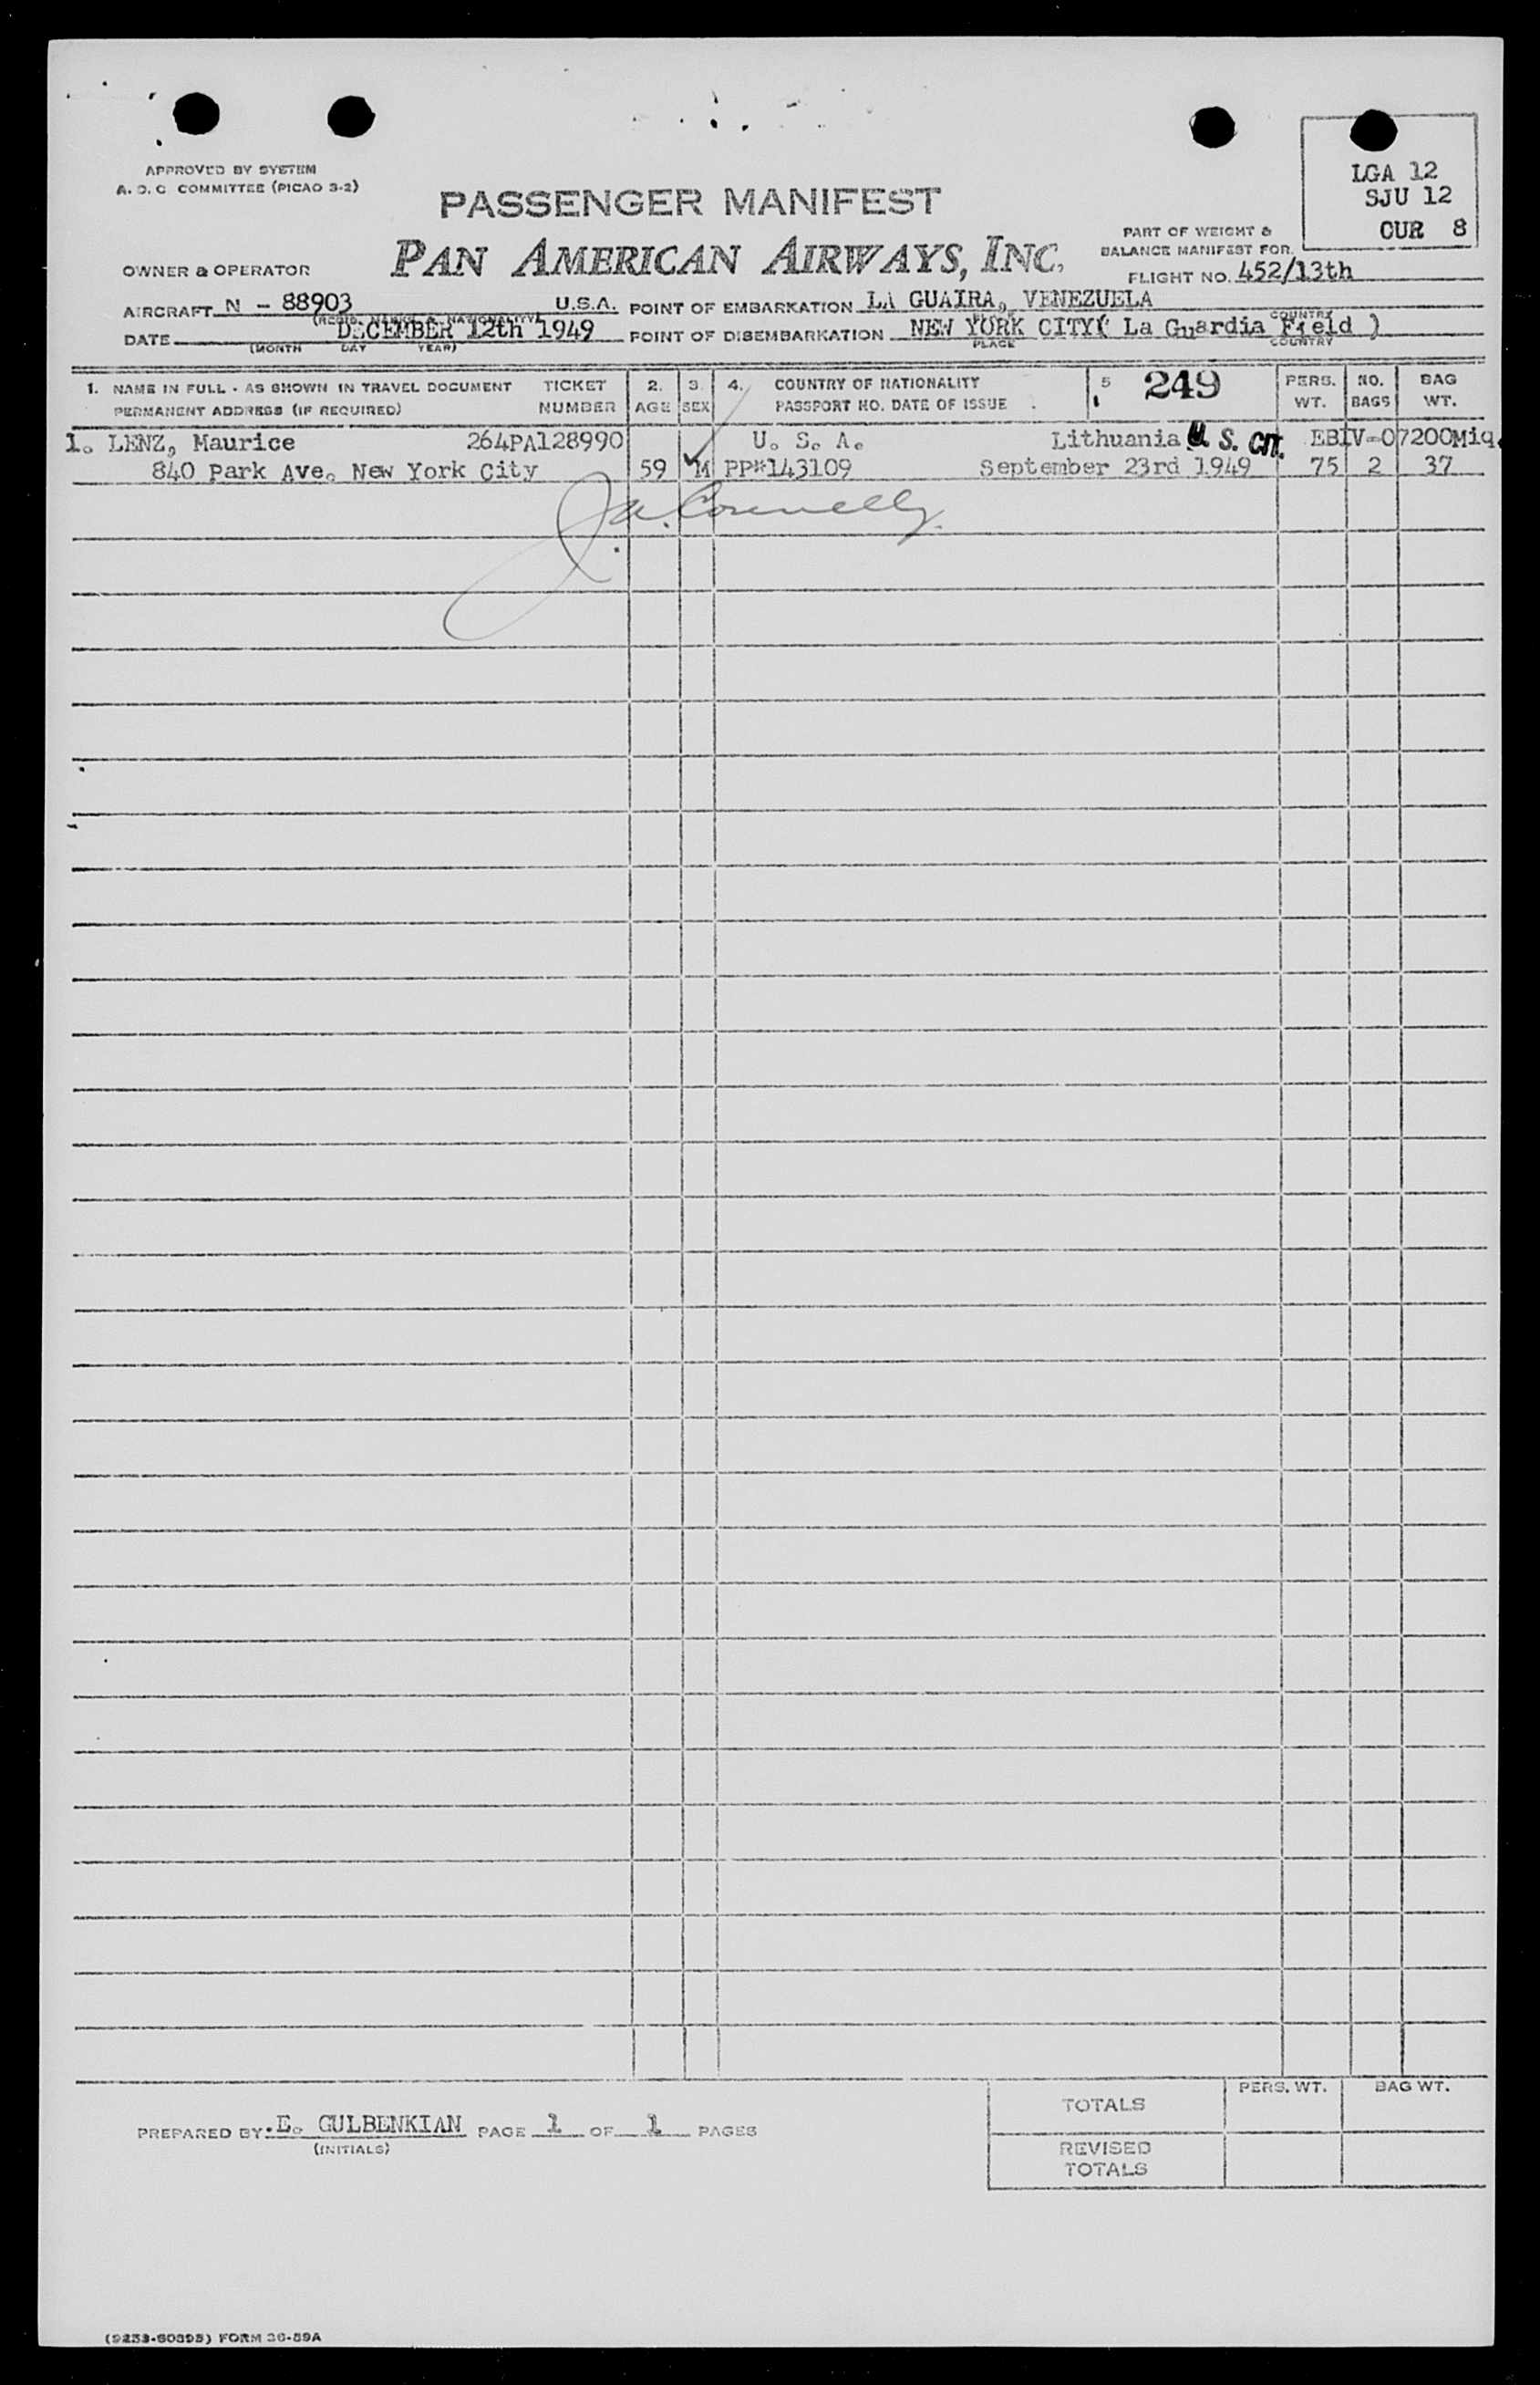 LGA 12
SJU 12
CUR 8
APPROVED BY SYSTEM
A. O. C COMMITTEE (PICAO 3-2)
PASSENGER MANIFEST
PAN AMERICAN AIRWAYS, INC.
PART OF WEIGHT &
BALANCE MANIFEST FOR
FLIGHT NO. 452/13th
OWNER & OPERATOR
AIRCRAFT N - 88903 U.S.A. POINT OF EMBARKATION LA GUAIRA, VENEZUELA
DATE DECEMBER 12th 1949 POINT OF DISEMBARKATION NEW YORK CITY( La Guardia Field )
(MONTH DAY YEAR) PLACE COUNTRY
1. NAME IN FULL - AS SHOWN IN TRAVEL DOCUMENT TICKET 2. 3. 4. COUNTRY OF NATIONALITY 5 249 PERS. NO. BAG
PERMANENT ADDRESS (IF REQUIRED) NUMBER AGE SEX PASSPORT NO. DATE OF ISSUE WT. BAGS WT.
1. LENZ, Maurice 264PA128990 U. S. A. Lithuania U. S. CIT. EBIV-07200Miq.
840 Park Ave. New York City 59 M PP#143109 September 23rd 1949 75 2 37
J. A. Connelly
PERS. WT. BAG WT.
TOTALS
PREPARED BY: E. GULBENKIAN PAGE 1 OF 1 PAGES
(INITIALS)
REVISED
TOTALS
(9253-60395) FORM 36-59A